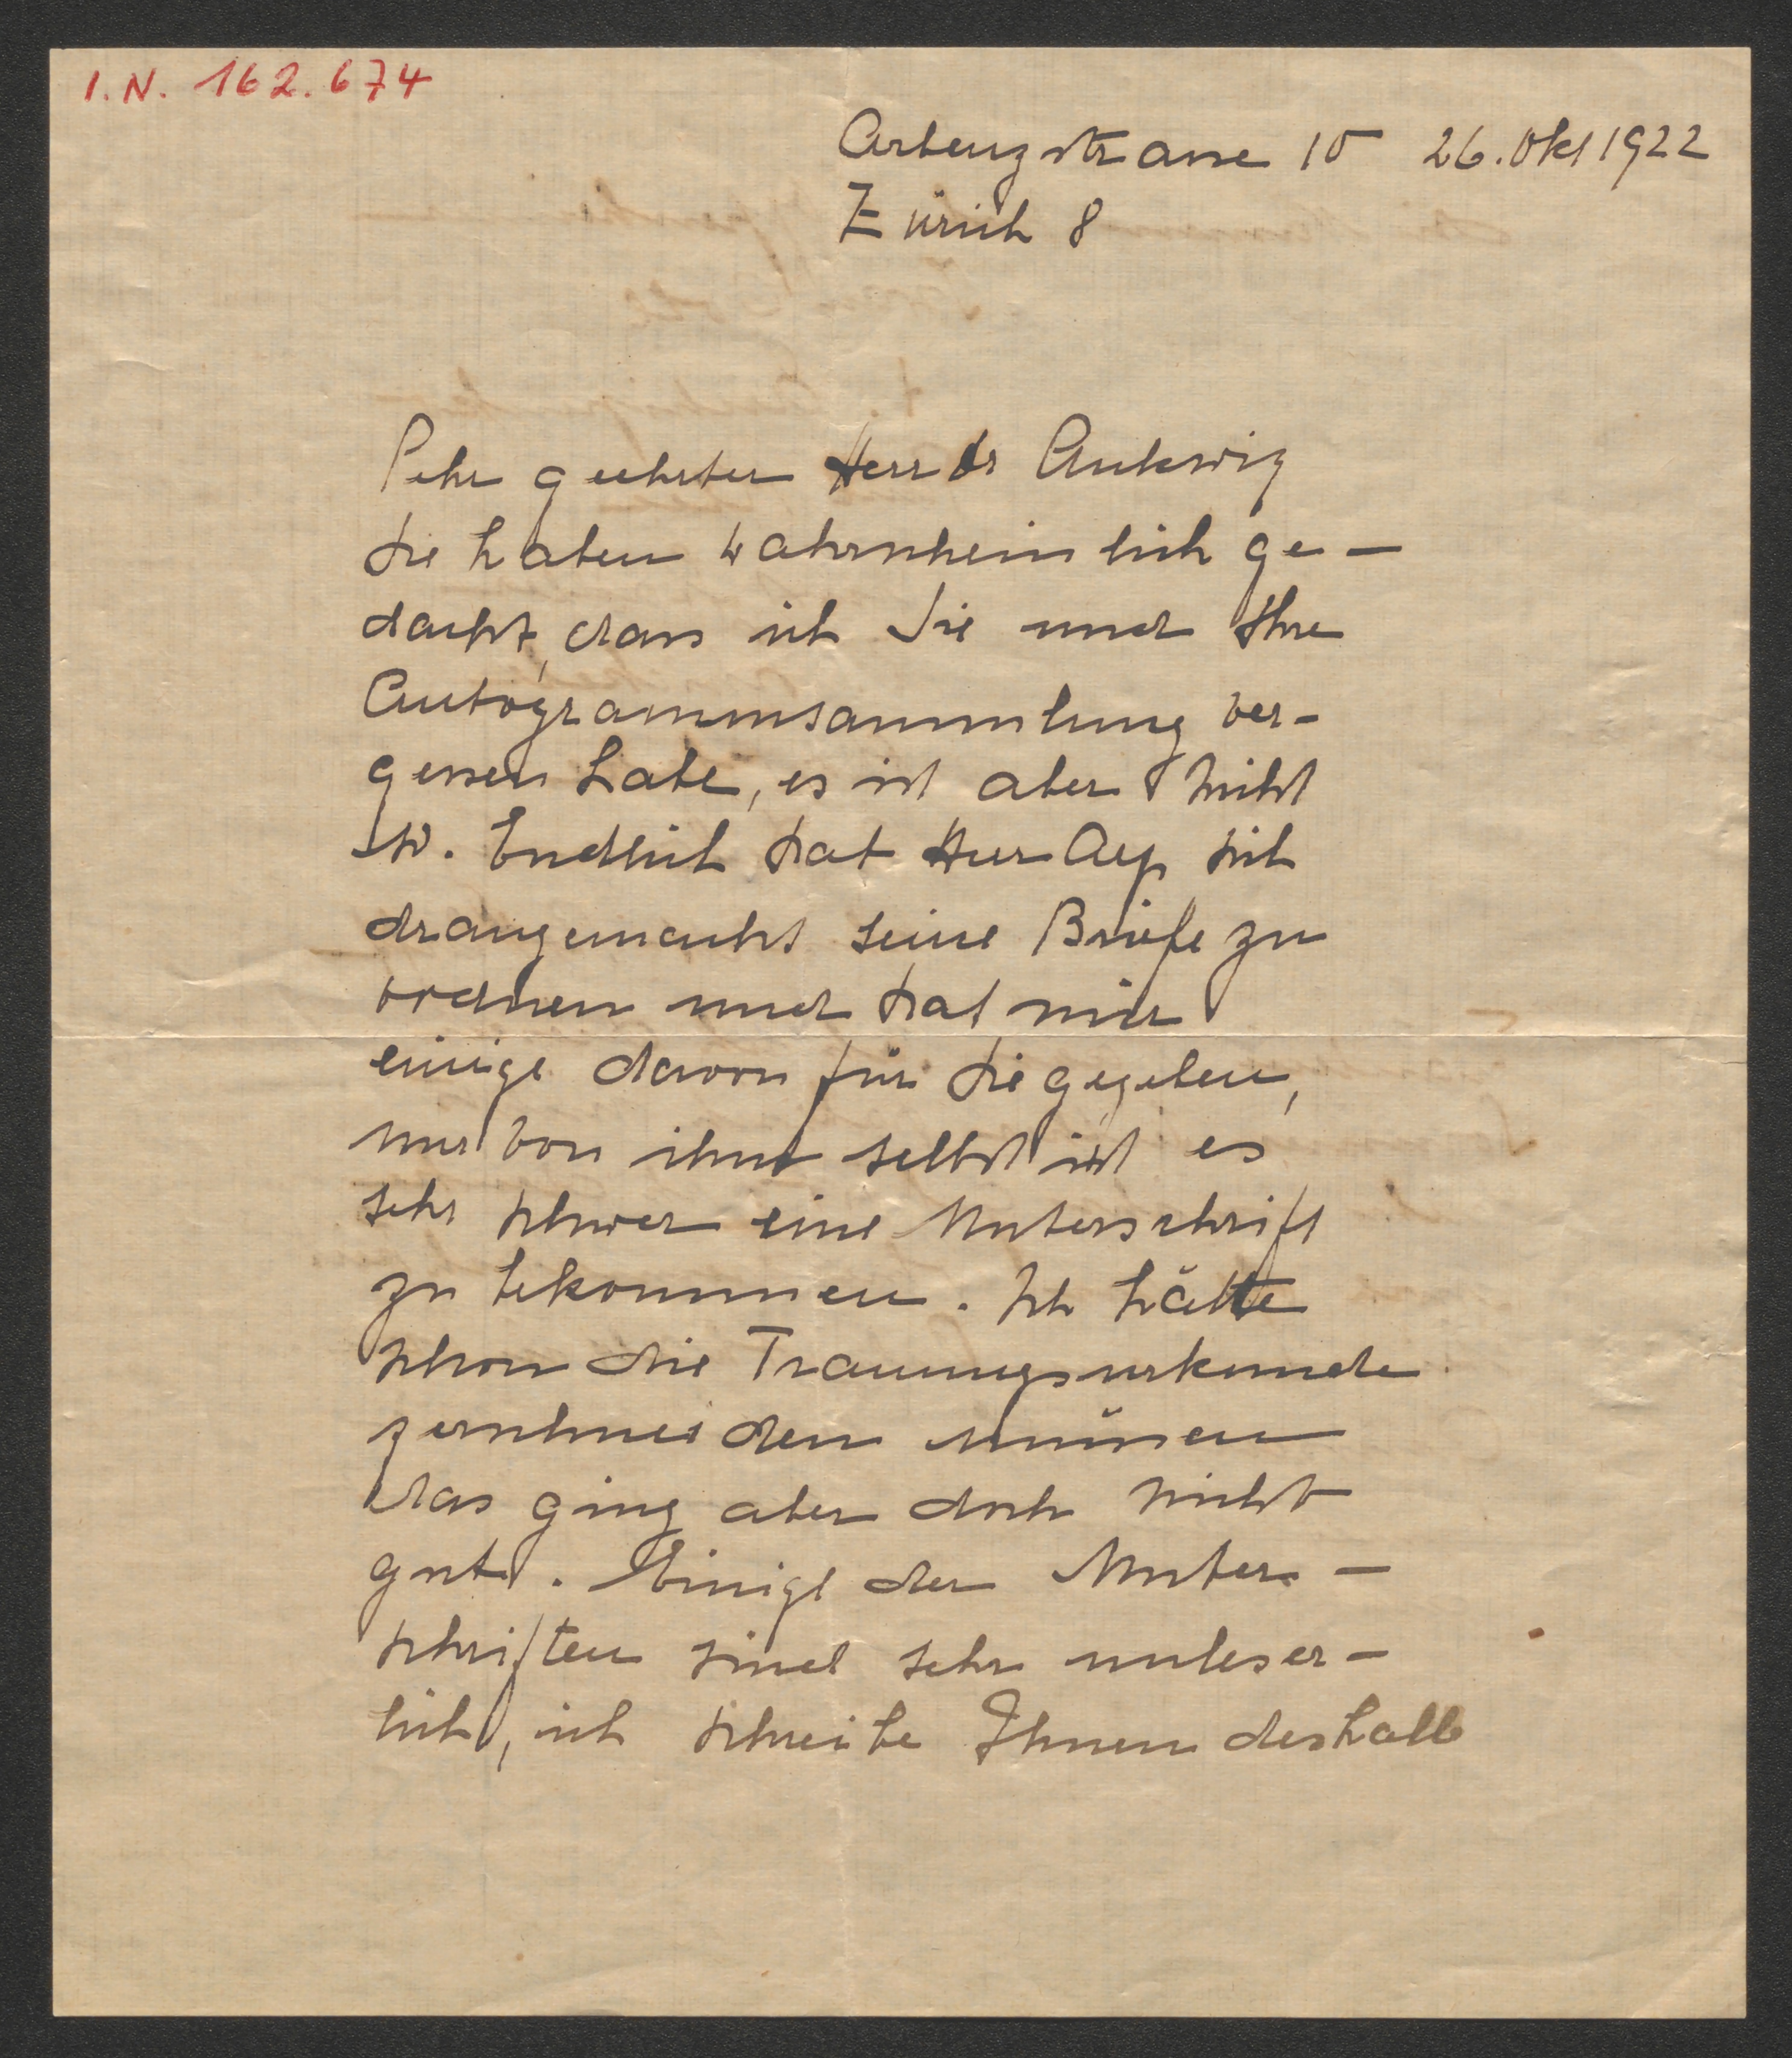 I.N. 162.674
Arbenzstrasse 10 26. Okt 1922
Zürich 8
Sehr geehrter Herr Dr Ankwicz
Sie haben wahrscheinlich ge-
dacht, dass ich Sie und Ihre
Autogrammsammlung ver-
gessen habe, es ist aber nicht
so. Endlich hat Herr Arp sich
drangemacht seine Briefe zu
ordnen und hat mir
einige davon für Sie gegeben,
nur von ihm selbst ist es
sehr schwer eine Unterschrift
zu bekommen. Ich hätte
schon die Trauungsurkunde
zerschneiden müssen
das ging aber doch nicht
gut. Einige der Unter-
schriften sind sehr unleser-
lich, ich schreibe Ihnen deshalb